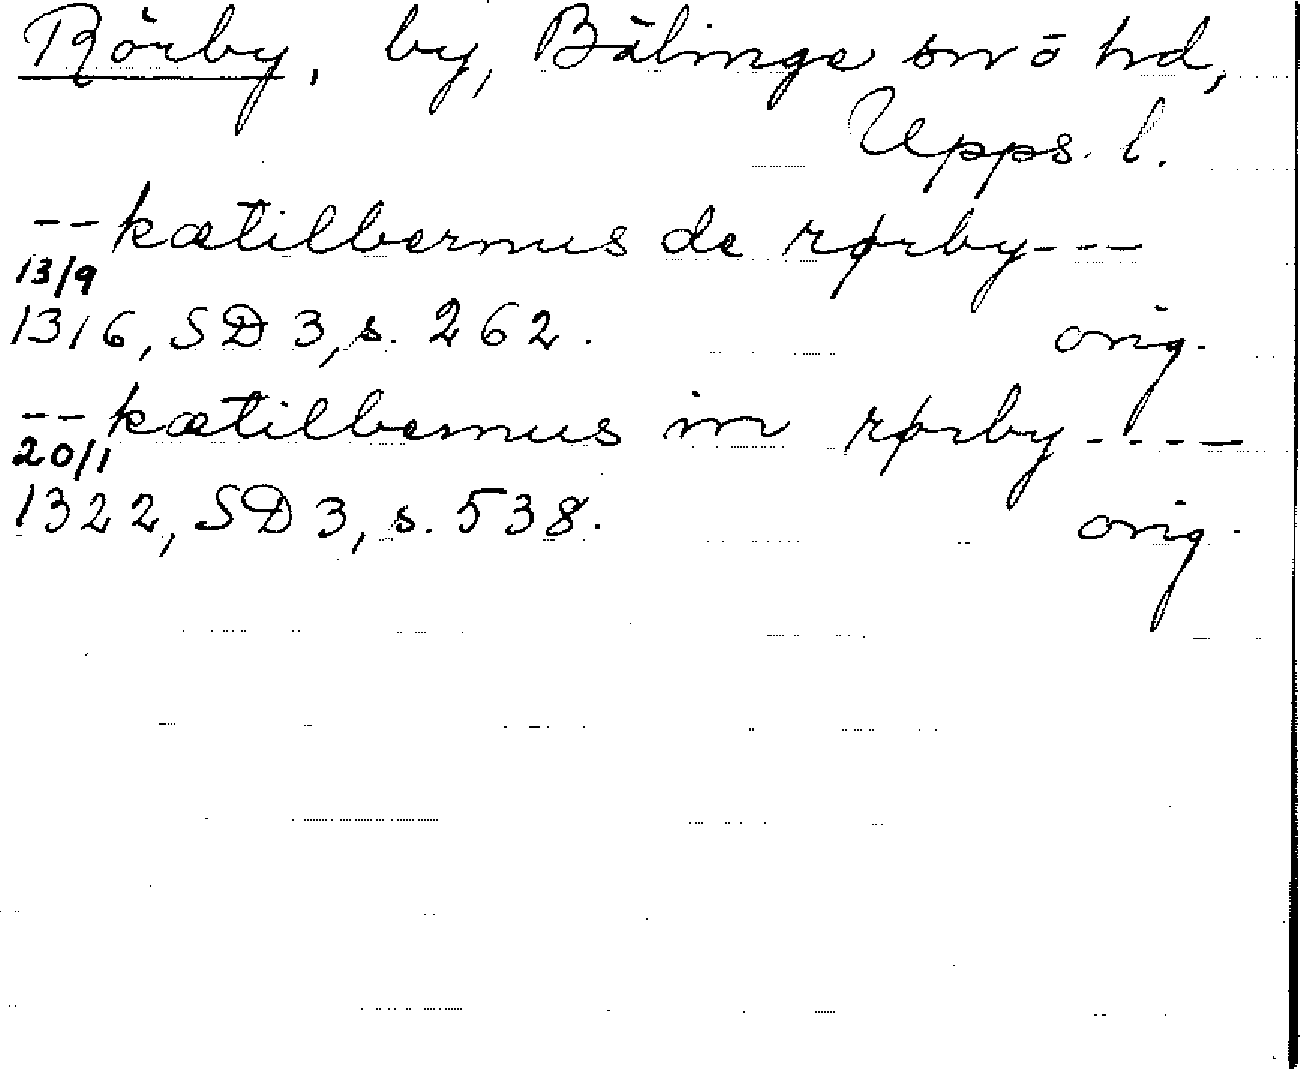 Rörby, by, Bälinge sn o hd,
Upps. l.
-- kætilbernus de rørby ---
13/9
1316, SD 3, s. 262. orig.
-- kætilbernus in rørby ----
20/1
1322, SD 3, s. 538. orig.